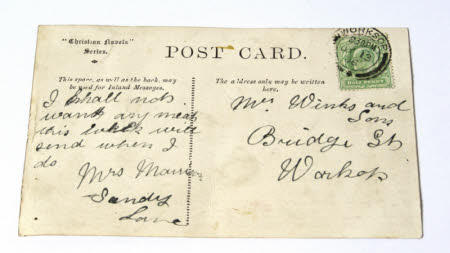 "Christian Novels"
Series.
POST CARD.
This space, as well as the back, may
be used for Inland Messages.
The address only may be written
here.
WORKSOP
HALF PENNY
I shall not
want any meat
this week will
send when I
do
Mrs
Sandy
Lane
Mrs Winks and
Sons
Bridge St
Worksop